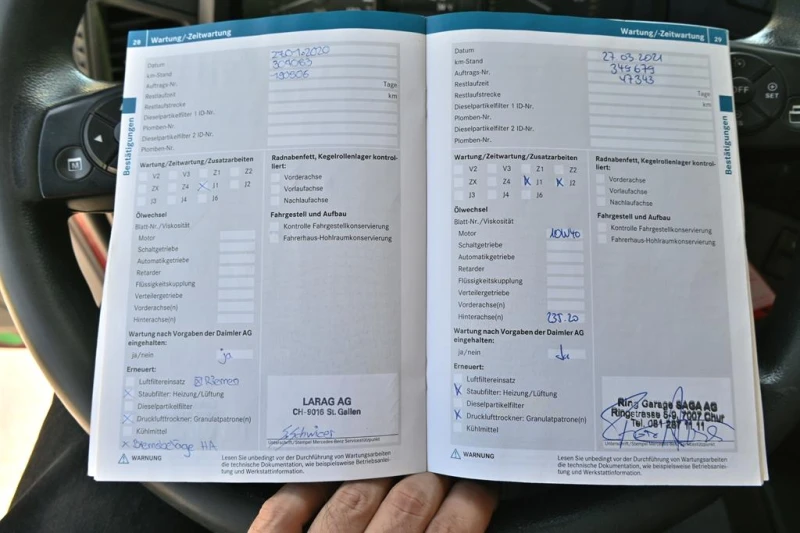 28 Wartung/-Zeitwartung
Datum 23.01.2020
km-Stand 304083
Auftrags-Nr. 190606
Restlaufzeit Tage
Restlaufstrecke km
Dieselpartikelfilter 1 ID-Nr.
Plomben-Nr.
Dieselpartikelfilter 2 ID-Nr.
Plomben-Nr.
Bestätigungen
Wartung/Zeitwartung/Zusatzarbeiten
V2 V3 Z1 Z2
ZX Z4 J1 J2
J3 J4 J6
Ölwechsel
Blatt-Nr./Viskosität
Motor
Schaltgetriebe
Automatikgetriebe
Retarder
Flüssigkeitskupplung
Verteilergetriebe
Vorderachse(n)
Hinterachse(n)
Wartung nach Vorgaben der Daimler AG
eingehalten:
ja/nein ja
Erneuert:
Luftfiltereinsatz Riemen
Staubfilter: Heizung/Lüftung
Dieselpartikelfilter
Drucklufttrockner: Granulatpatrone(n)
Kühlmittel
Bremsbeläge HA
WARNUNG
Radnabenfett, Kegelrollenlager kontrol-
liert:
Vorderachse
Vorlaufachse
Nachlaufachse
Fahrgestell und Aufbau
Kontrolle Fahrgestellkonservierung
Fahrerhaus-Hohlraumkonservierung
LARAG AG
CH-9016 St. Gallen
Unterschrift/Stempel Mercedes-Benz Servicestützpunkt
Lesen Sie unbedingt vor der Durchführung von Wartungsarbeiten
die technische Dokumentation, wie beispielsweise Betriebsanlei-
tung und Werkstattinformation.
Wartung/-Zeitwartung 29
Datum 27 03 2021
km-Stand 349679
Auftrags-Nr. 47343
Restlaufzeit Tage
Restlaufstrecke km
Dieselpartikelfilter 1 ID-Nr.
Plomben-Nr.
Dieselpartikelfilter 2 ID-Nr.
Plomben-Nr.
Bestätigungen
Wartung/Zeitwartung/Zusatzarbeiten
V2 V3 Z1 Z2
ZX Z4 J1 J2
J3 J4 J6
Ölwechsel
Blatt-Nr./Viskosität
Motor 10W40
Schaltgetriebe
Automatikgetriebe
Retarder
Flüssigkeitskupplung
Verteilergetriebe
Vorderachse(n)
Hinterachse(n) 235.20
Wartung nach Vorgaben der Daimler AG
eingehalten:
ja/nein Ja
Erneuert:
Luftfiltereinsatz
Staubfilter: Heizung/Lüftung
Dieselpartikelfilter
Drucklufttrockner: Granulatpatrone(n)
Kühlmittel
WARNUNG
Radnabenfett, Kegelrollenlager kontrol-
liert:
Vorderachse
Vorlaufachse
Nachlaufachse
Fahrgestell und Aufbau
Kontrolle Fahrgestellkonservierung
Fahrerhaus-Hohlraumkonservierung
Ring Garage SAGA AG
Ringstrasse 5-9, 7007 Chur
Tel. 081 287 11 11
Unterschrift/Stempel Mercedes-Benz Servicestützpunkt
Lesen Sie unbedingt vor der Durchführung von Wartungsarbeiten
die technische Dokumentation, wie beispielsweise Betriebsanlei-
tung und Werkstattinformation.
OFF
SET